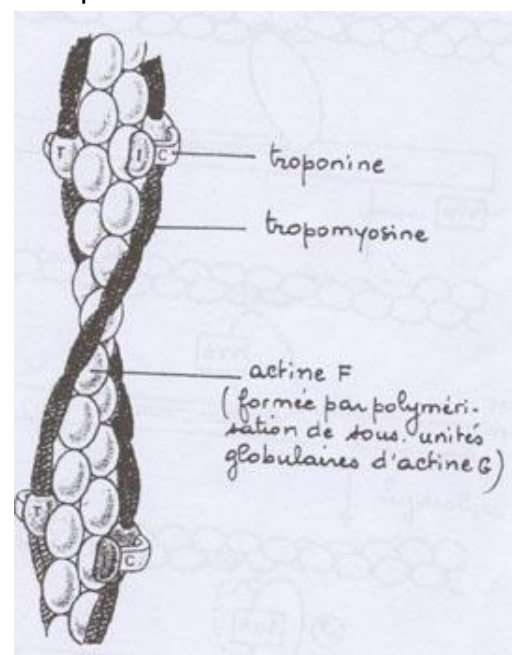 T
I
C
troponine
tropomyosine
actine F
(formée par polyméri-
sation de sous-unités
globulaires d'actine G)
T
C